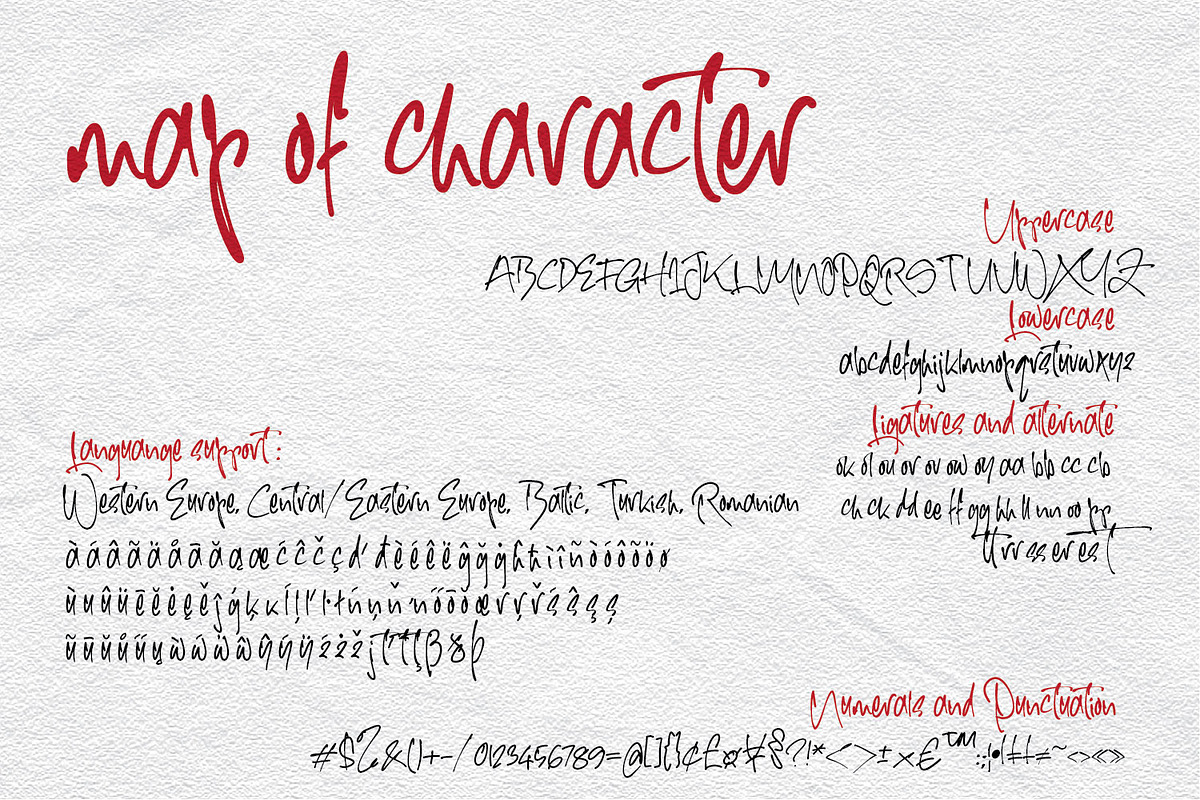 map of character
Uppercase
ABCDEFGHIJKLMNOPQRSTUVWXYZ
Lowercase
abcdefghijklmnopqrstuvwxyz
Ligatures and alternate
ok ol ou or ov ow oy aa bb cc cb
ch ck dd ee ff gg hh ll nn oo pp
tt rr ss er es t
Languange support:
Western Europe, Central/Eastern Europe, Baltic, Turkish, Romanian
àáâãäåāăąæćĉčçďđèéêëĝğġĥħìîñòóôõöø
ùuûüēĕėęěĵģķĸĺļľŀłńņňŉőōŏœŕŗřśŝşș
ñūŭůűųẁẃẅŵŷýÿźżžjťŧţß&þ
Numerals and Punctuation
#$?&()+-/0123456789=@[]{}¢£¤¥§?!*<>±×€™:;¦•|‡†≠~<>«»